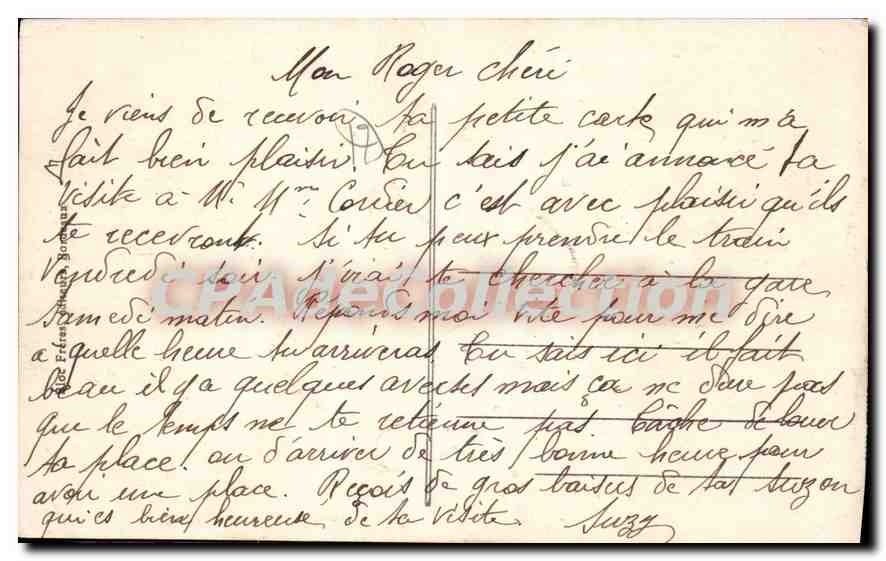 Mon Roger chéri
Je viens de recevoir ta petite carte qui m'a
fait bien plaisir. Tu sais j'ai annoncé ta
visite à M. Mme Cordier c'est avec plaisir qu'ils
te recevront. Si tu peux prendre le train
vendredi soir j'irai te chercher à la gare
samedi matin. Réponds moi vite pour me dire
a quelle heure tu arriveras Tu sais ici il fait
beau il y a quelques averses mais ça ne dure pas
que le temps ne te retienne pas tâche de louer
ta place. ou d'arriver de très bonne heure pour
avoir une place. Reçois de gros baisers de ta Suzon
qui es bien heureuse de ta visite Suzy
17
Frères, éditeurs, Bordeaux
CPAdeCollection